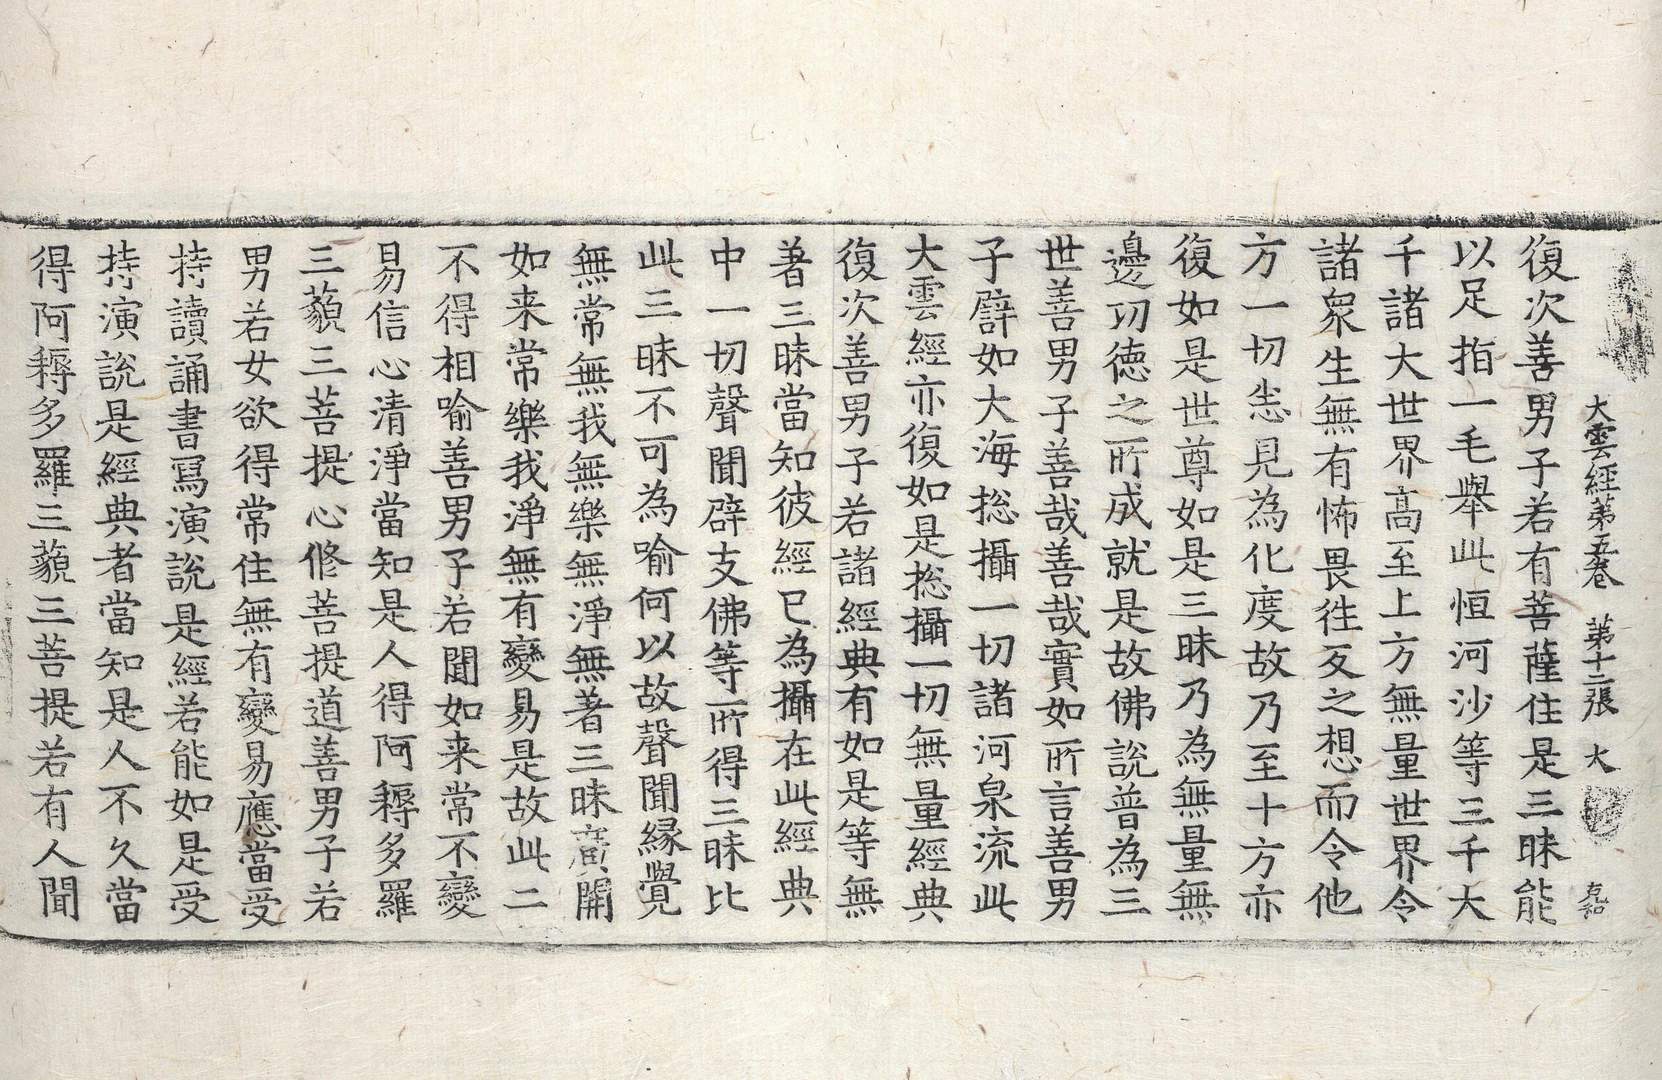 大雲經第五卷 第十二張 大
復次善男子若有菩薩住是三昧能
以足指一毛舉此恒河沙等三千大
千諸大世界髙至上方無量世界令
諸衆生無有怖畏往反之想而令他
方一切恚見為化度故乃至十方亦
復如是世尊如是三昧乃為無量無
邊功德之所成就是故佛說普為三
世善男子善哉善哉實如所言善男
子譬如大海捴攝一切諸河泉流此
大雲經亦復如是捴攝一切無量經典
復次善男子若諸經典有如是等無
著三昧當知彼經已為攝在此經典
中一切聲聞辟支佛等所得三昧比
此三昧不可為喻何以故聲聞緣覺
無常無我無樂無淨無著三昧廣開
如来常樂我淨無有變易是故此二
不得相喻善男子若聞如来常不變
易信心清淨當知是人得阿耨多羅
三藐三菩提心修菩提道善男子若
男若女欲得常住無有變易應當受
持讀誦書寫演說是經若能如是受
持演說是經典者當知是人不久當
得阿耨多羅三藐三菩提若有人聞